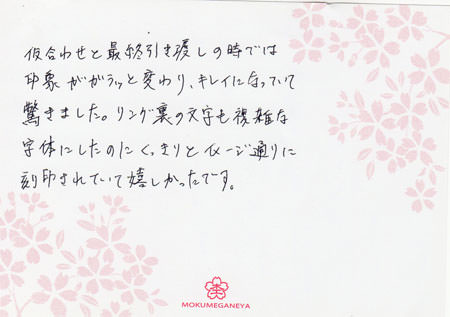 仮合わせと最終引き渡しの時では
印象ががラッと変わり、キレイになっていて
驚きました。リング裏の文字も複雑な
字体にしたのにくっきりとイメージ通りに
刻印されていて嬉しかったです。
MOKUMEGANEYA